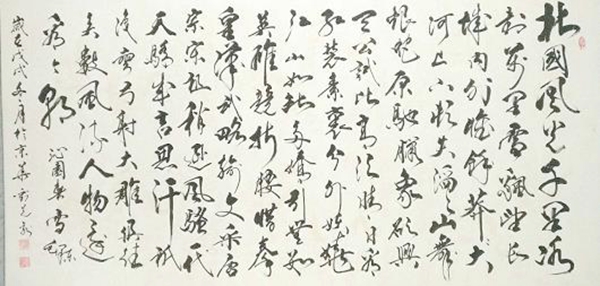 北國風光千里冰
封萬里雪飄望長
城內外惟餘莽莽大
河上下頓失滔滔山舞
銀蛇原馳臘象欲與
天公試比高須晴日看
紅裝素裹分外妖嬈
江山如此多嬌引無數
英雄競折腰惜秦
皇漢武略輸文采唐
宗宋祖稍遜風騷一代
天驕成吉思汗祇
識彎弓射大雕俱往
矣數風流人物還
看今朝
沁園春雪
歲在戊戌冬月於京華